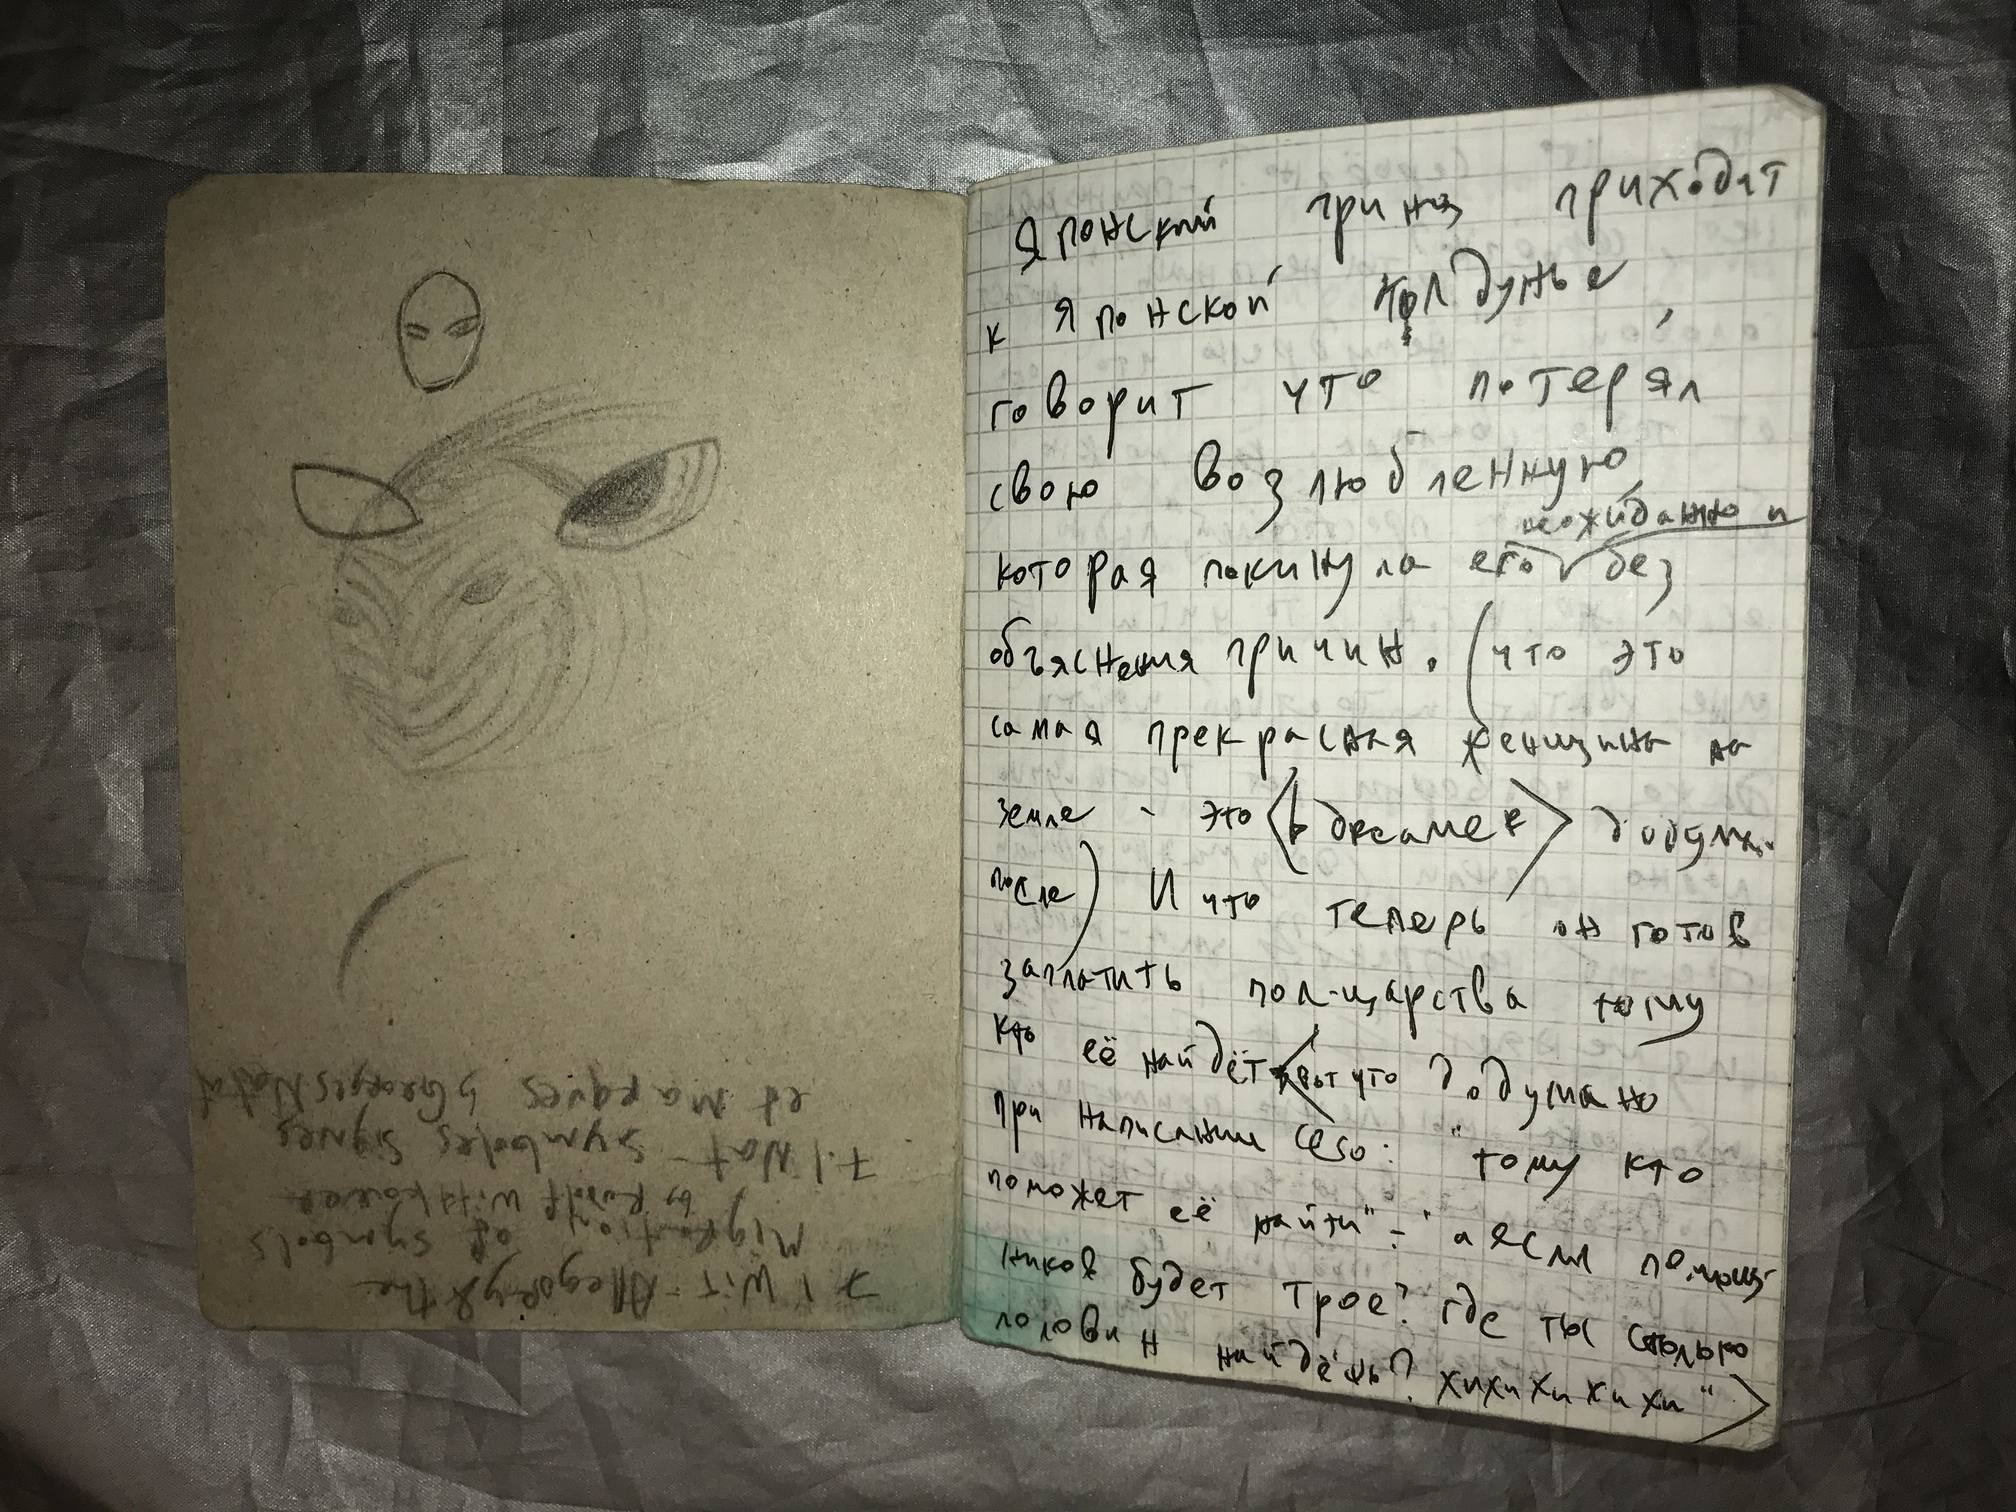 7.1 Wit - Allegory & the
Migration of symbols
by Rudolf Wittkower
7.1 Nat - Symboles signes
et Marques by Georges Nataf
Японский принц приходит
к японской колдунье,
говорит что потерял
свою возлюбленную,
неожиданно и
которая покинула его без
объяснения причин. (что это
самая прекрасная женщина на
земле - это <в довесамек> додума..
после) И что теперь он готов
заплатить пол-царства тому
кто её найдёт <вот что додумано
при написании сего: "тому кто
поможет её найти" - "а если помощ
ников будет трое? где ты столько
половин найдёшь? хихихихихи">